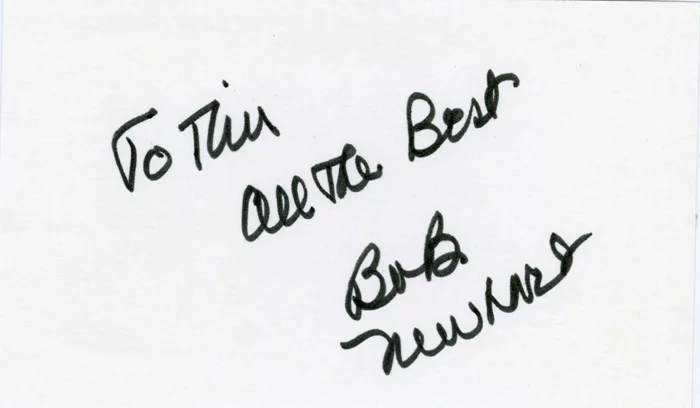 To Tim
All The Best
Bob
Newhart